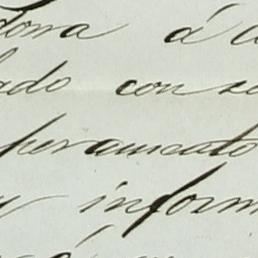 dona á a
ado con se
peramento
y inform